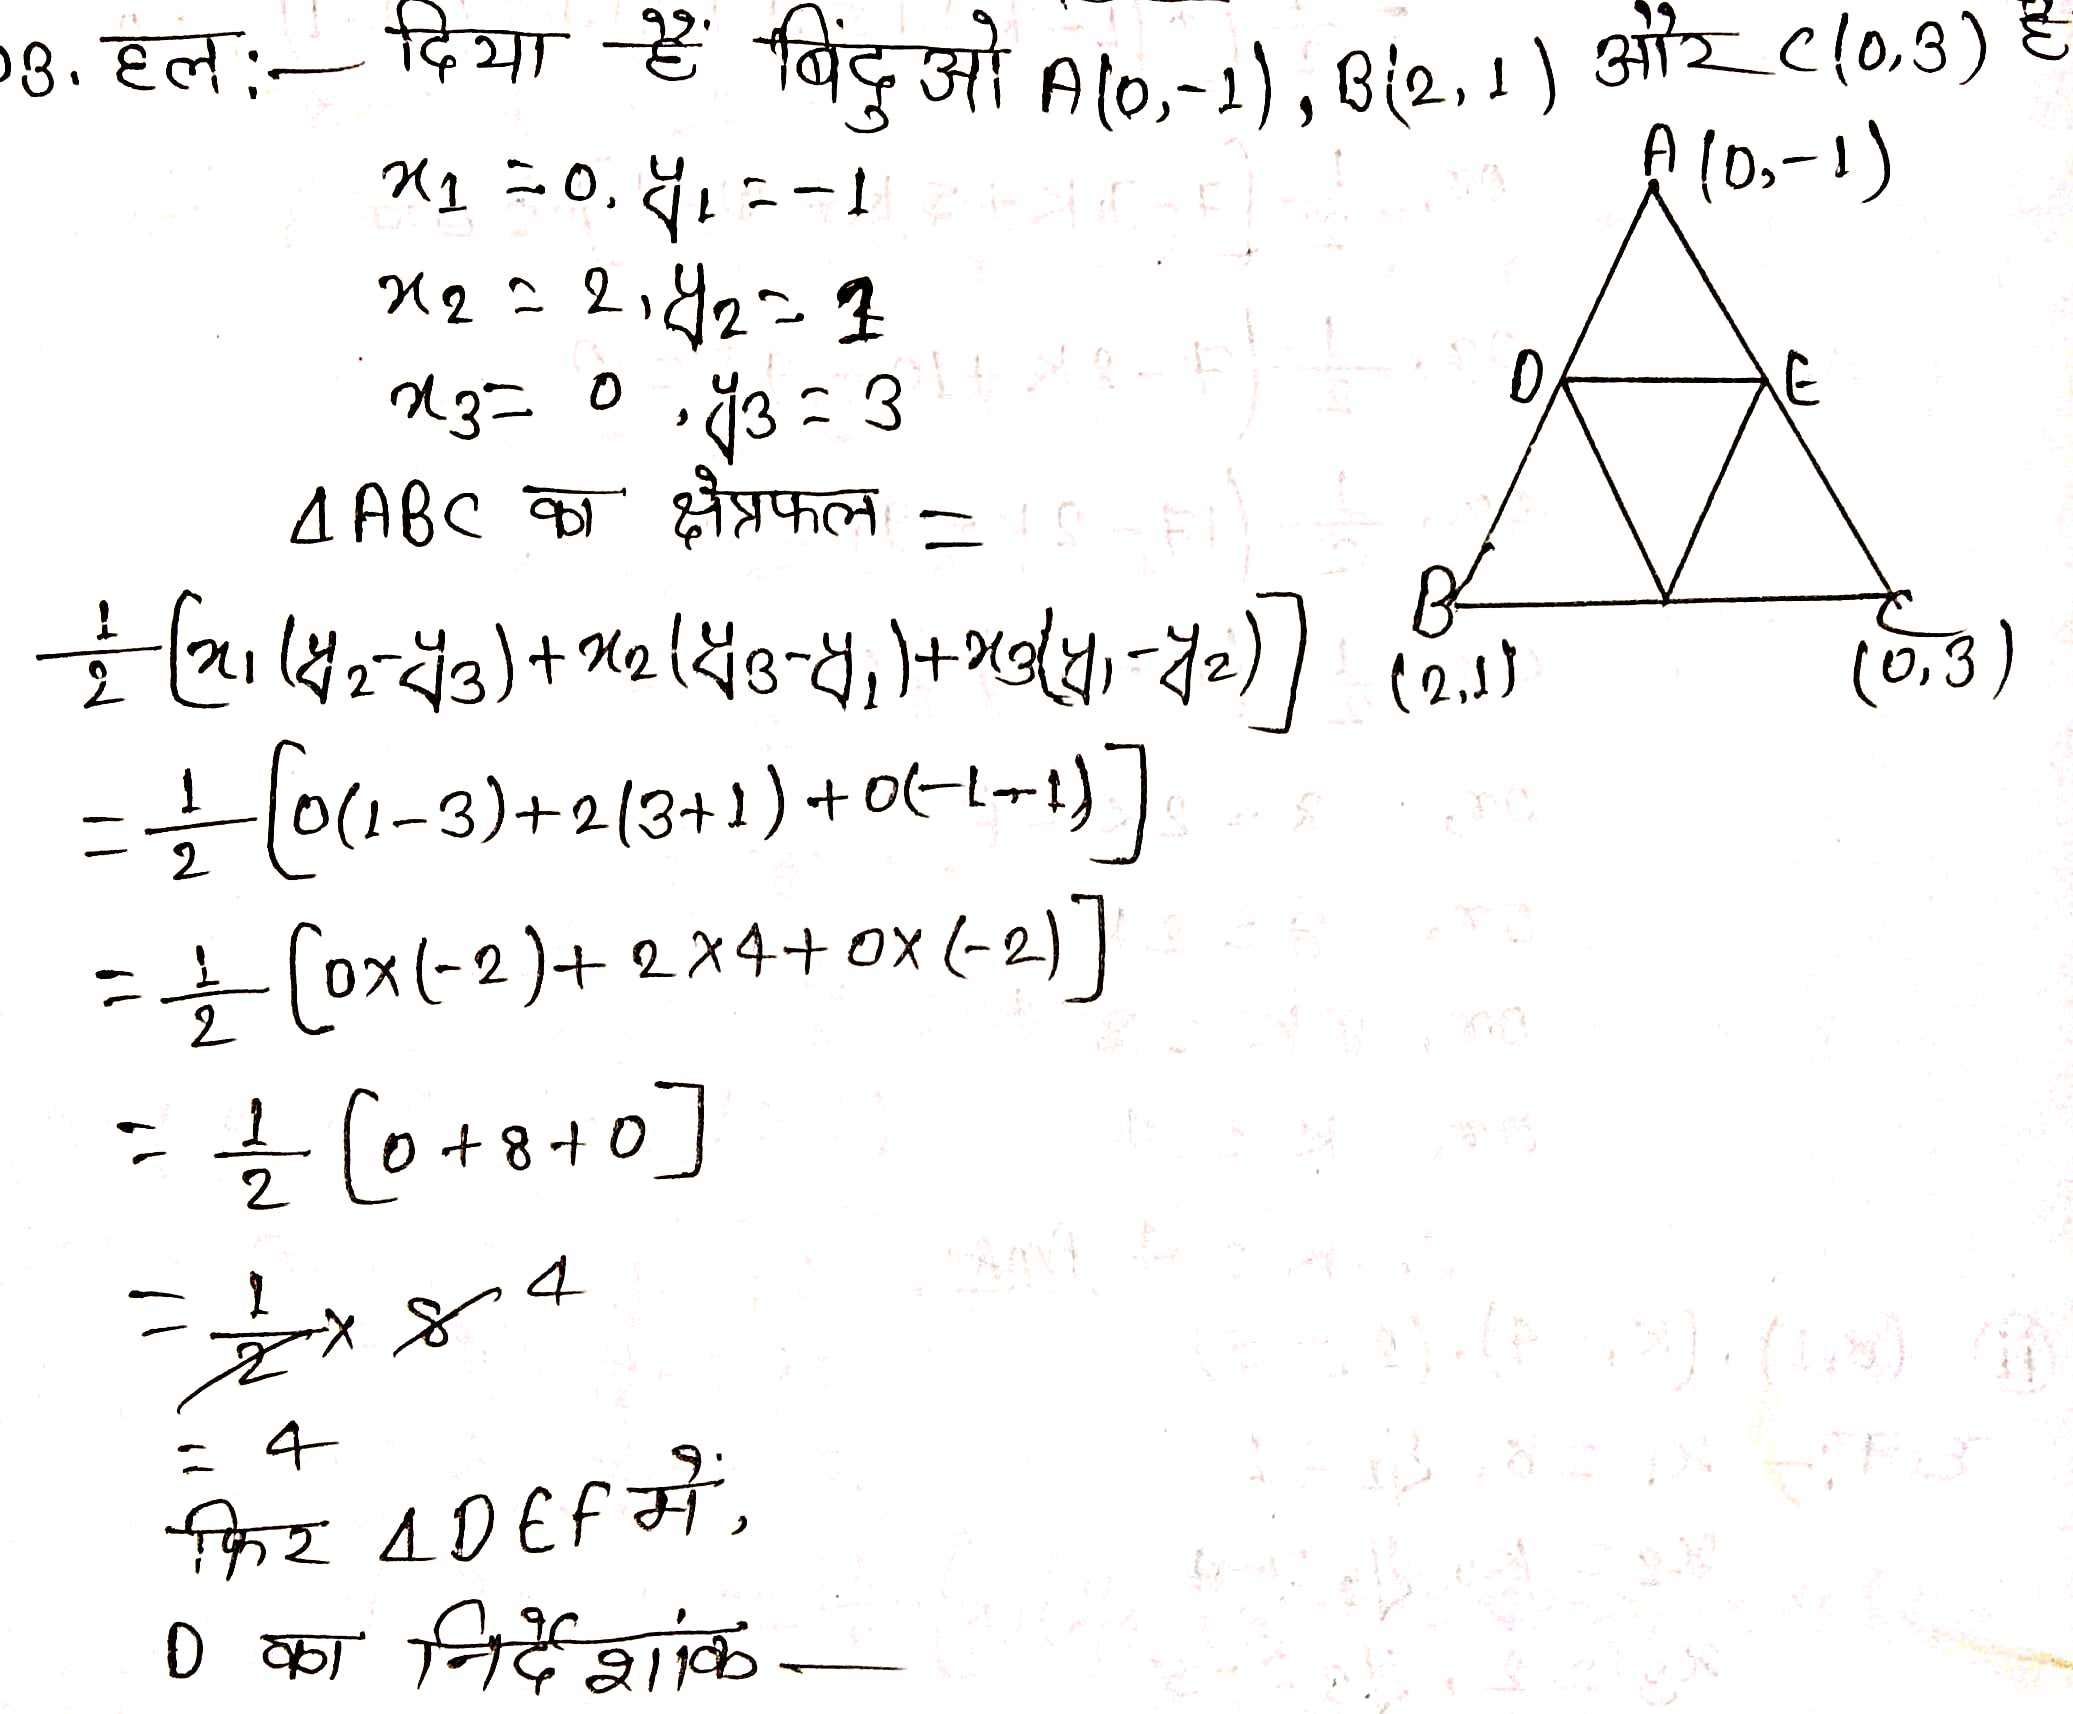 03. हल :— दिया हैं बिंदुओ A(0,-1), B(2,1) और C(0,3) है
x1 = 0, y1 = -1
x2 = 2, y2 = 1
x3 = 0, y3 = 3
ΔABC का क्षेत्रफल =
1/2 [x1(y2-y3)+x2(y3-y1)+x3(y1-y2)]
= 1/2 [0(1-3)+2(3+1)+0(-1-1)]
= 1/2 [0×(-2)+2×4+0×(-2)]
= 1/2 [0+8+0]
= 1/2 × 8 4
= 4
फिर ΔDEF में,
D का निर्देशांक —
A(0,-1)
D E
B C
(2,1) (0,3)